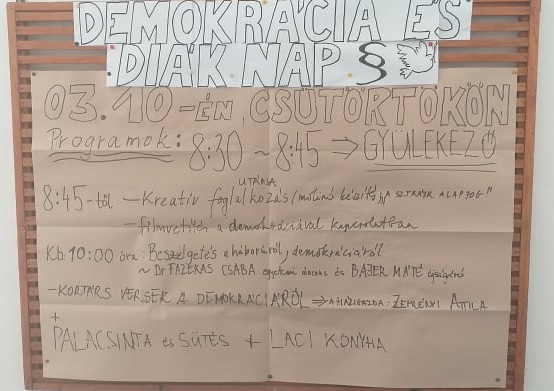 DEMOKRÁCIA ÉS
DIÁK NAP §
03.10-ÉN, CSÜTÖRTÖKÖN
Programok: 8:30 ~ 8:45 ⇒ GYÜLEKEZŐ
UTÁNA
8:45-től — Kreatív foglalkozás (molinó készítés, "A SZTRÁJK ALAPJOG"
— filmvetítés a demokráciával kapcsolatban
Kb. 10:00 óra: Beszélgetés a háborúról, demokráciáról
~ Dr FAZEKAS CSABA egyetemi docens és BABER MÁTÉ újságíró
- KORTÁRS VERSEK A DEMOKRÁCIÁRÓL ⇒ A HÁZIGAZDA: ZEMLÉNYI ATTILA
+
PALACSINTA és SÜTÉS + LACI KONYHA